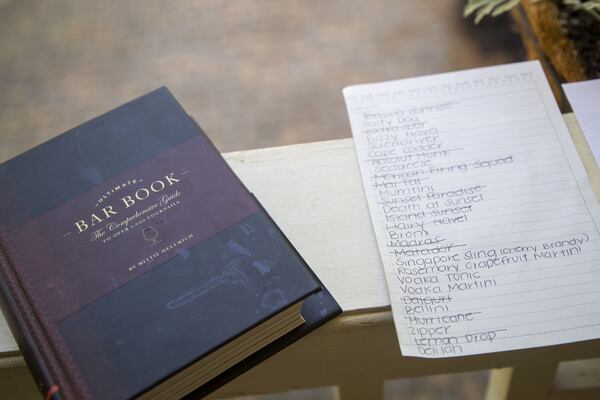 ULTIMATE
BAR BOOK
The Comprehensive Guide
TO OVER 1,000 COCKTAILS
BY MITTIE HELLMICH
Tequila Sunrise
Salty Dog
Vodka Sour
Fuzzy Navel
Screwdriver
Cape Codder
Absolut Hunk
Seabreeze
Mexican Firing Squad
Mai Tai
Mumtini
Sunset Paradise
Death at Sunset
Island Sunset
Hairy Navel
Bronx
Madras
Matador
Singapore Sling (cherry Brandy)
Rosemary Grapefruit Martini
Vodka Tonic
Vodka Martini
Daiquiri
Bellini
Hurricane
Zipper
Lemon Drop
Delilah